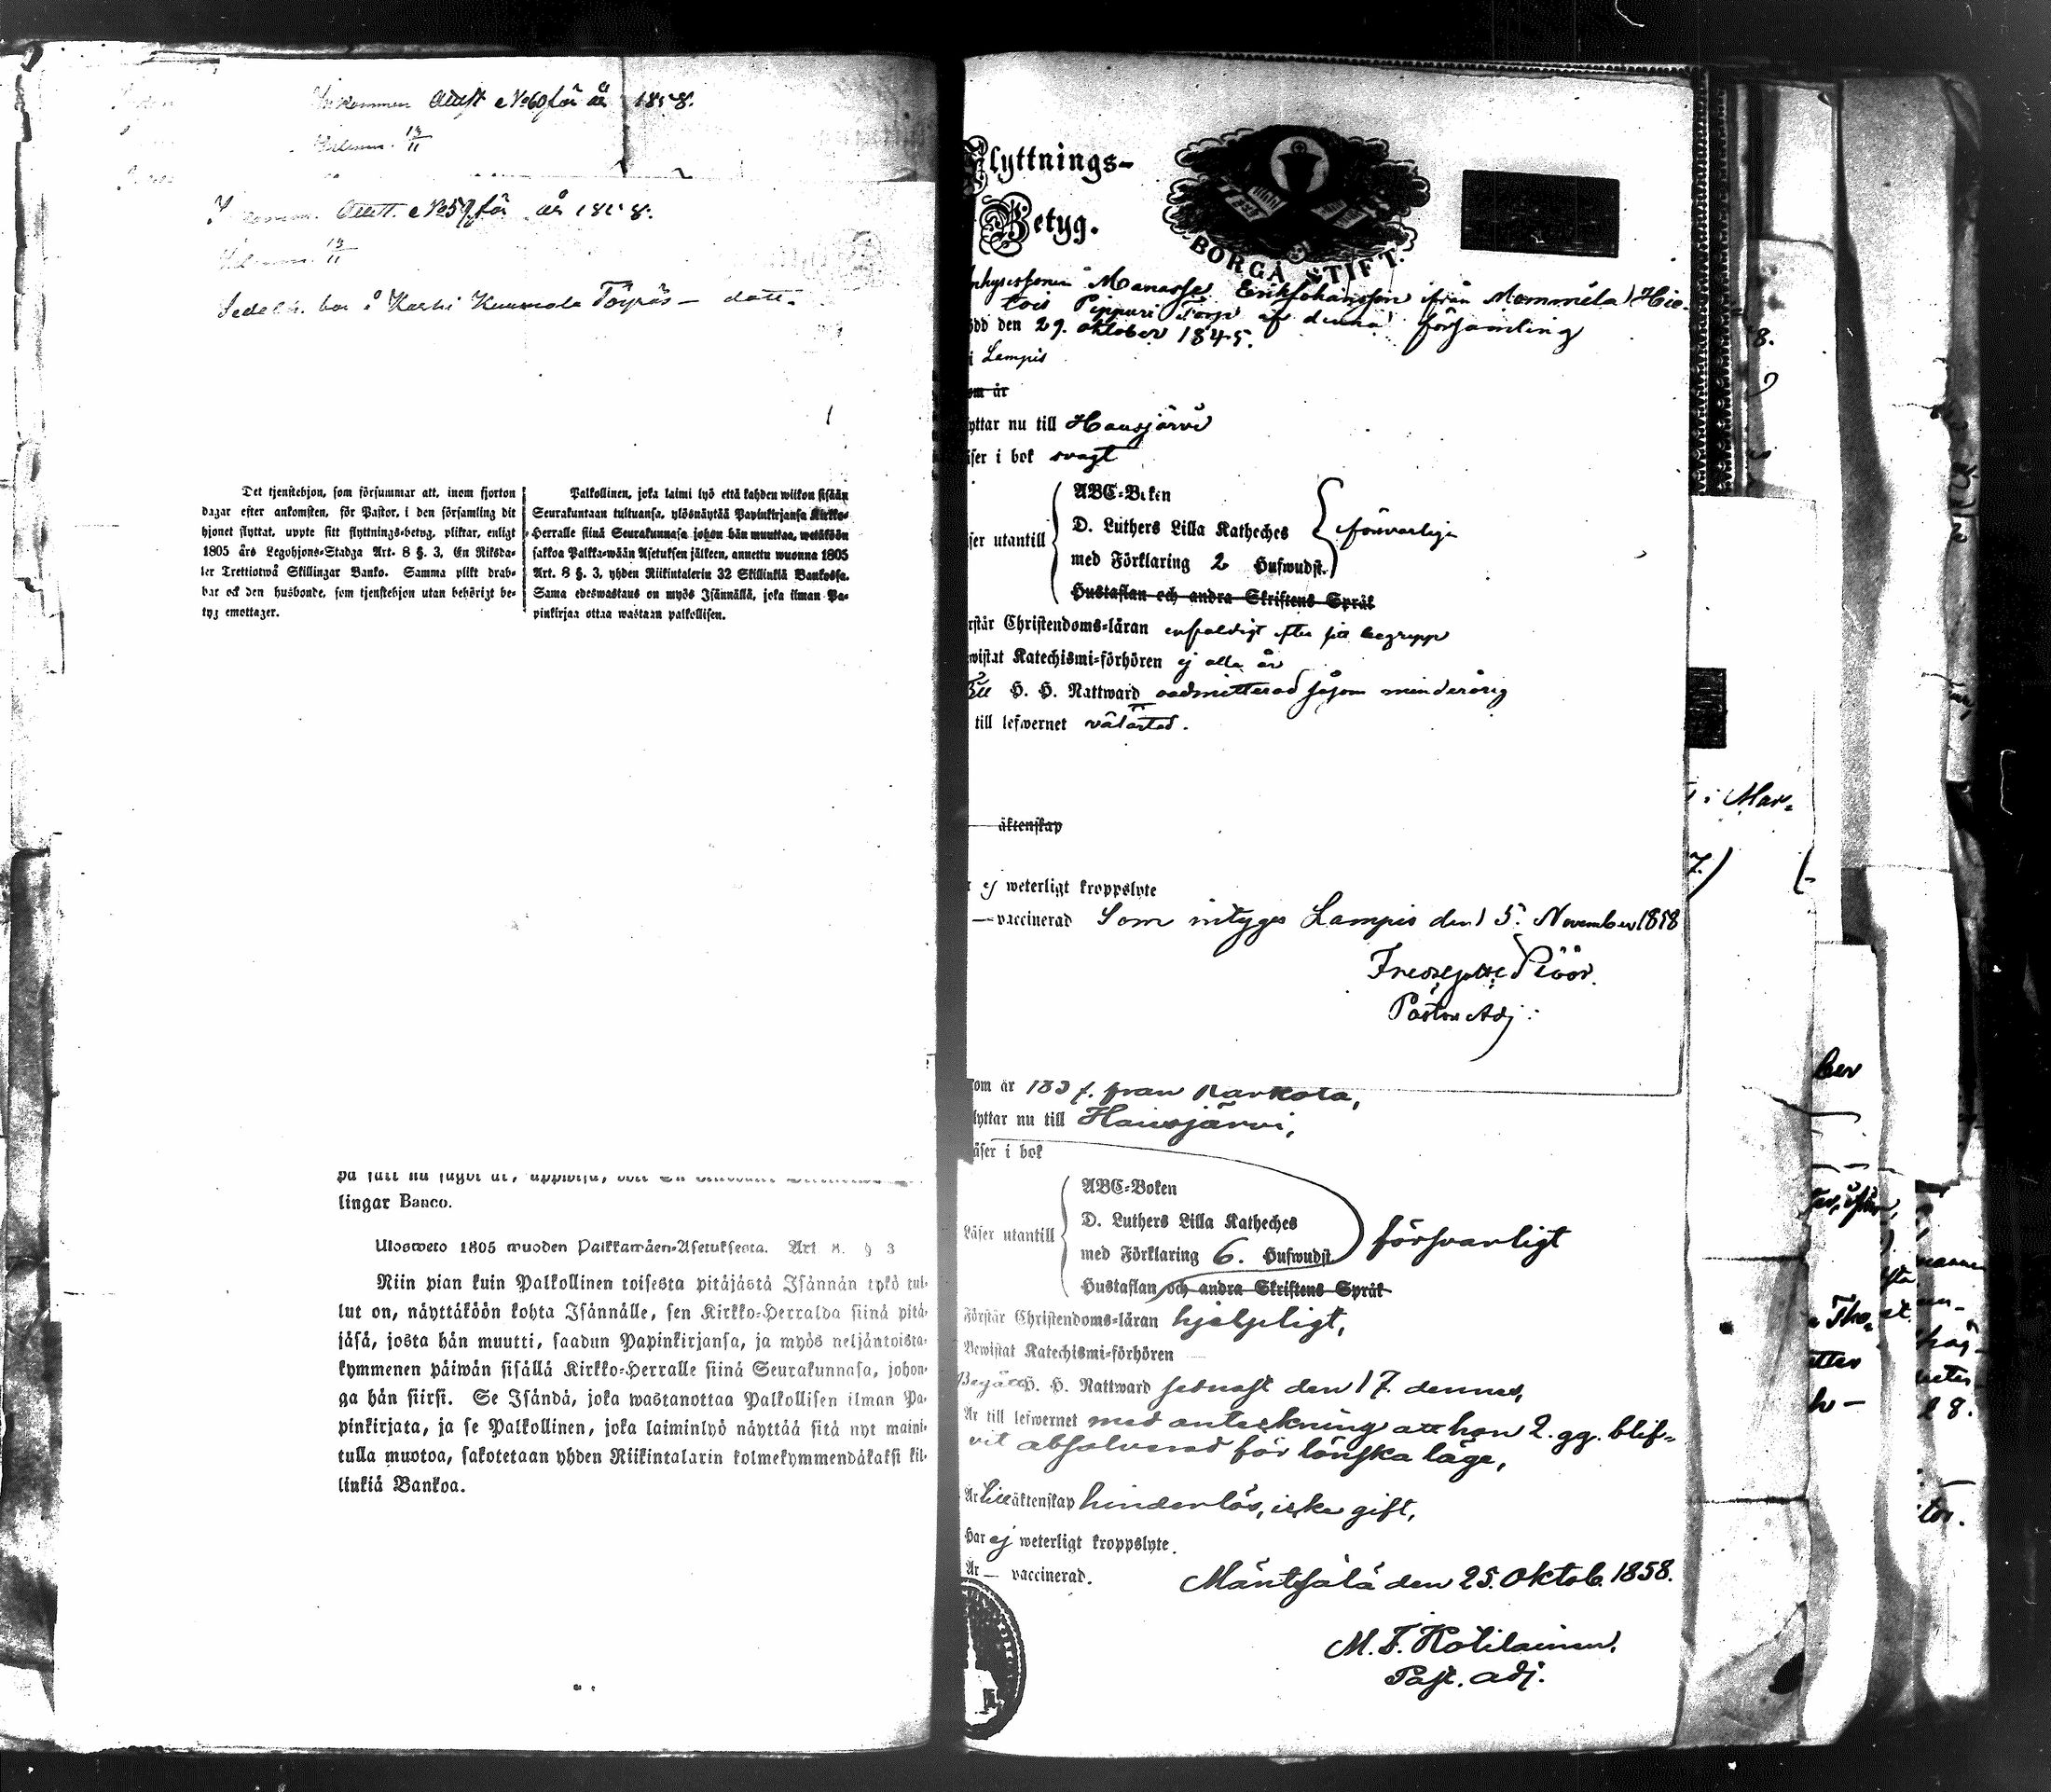 Inkommen Attest No 60 för år 1858.
13/11
Attest. No 59 för år 1858.
13/11
Sedelh. bor å Karhi Kuumola Töyräs — datt.
Det tjenstehjon, som försummar att, inom fjorton
dagar efter ankomsten, för Pastor, i den församling dit
hjonet flyttat, uppte sitt flyttnings-betyg, pliktar, enligt
1805 års Legohjons-Stadga Art. 8 §. 3, En Riksda-
ler Trettiotwå Skillingar Banko. Samma plikt drab-
bar ock den husbonde, som tjenstehjon utan behörigt be-
tyg emottager.
Palkollinen, joka laimi lyö että kahden wiikon sisään
Seurakuntaan tultuansa, ylösnäytää Papinkirjansa Kirkko-
Herralle siinä Seurakunnasa johon hän muuttaa, wetäköön
sakkoa Palkka-wään Asetuksen jälkeen, annettu wuonna 1805
Art. 8 §. 3, yhden Riikintalerin 32 Skillinkiä Bankossa.
Sama edeswastaus on myös Isännällä, joka ilman Pa-
pinkirjaa ottaa wastaan palkollisen.
lingar Banco.
Uloswето 1805 wuoden Palkkawäen-Asetuksesta. Art 8. § 3
Niin pian kuin Palkollinen toisesta pitäjästä Isännän tykö tul-
lut on, näyttäköön kohta Isännälle, sen Kirkko-Herralda siinä pitä-
jäsä, josta hän muutti, saadun Papinkirjansa, ja myös neljäntoista-
kymmenen päiwän sisällä Kirkko-Herralle siinä Seurakunnasa, johon-
ga hän siirsi. Se Isändä, joka wastanottaa Palkollisen ilman Pa-
pinkirjata, ja se Palkollinen, joka laiminlyö näyttää sitä nyt maini-
tulla muotoa, sakotetaan yhden Riikintalarin kolmekymmendäkaksi kil-
linkiä Bankoa.
Flyttnings-
Betyg.
BORGÅ STIFT.
Manasse Eriksohansson ifrån Mommila Hie-
tois Pippuri Torp af denna församling
född den 29. oktober 1845.
i Lampis
om år
yttar nu till Hausjärvi
äser i bok svagt
äser utantill
ABC-Boken
D. Luthers Lilla Katheches
med Förklaring 2 Hufwudst.
försvarligen
Hustaflan och andra Skriftens Språk
rstår Christendoms-läran enfaldigt efter sitt begrepp
wistat Katechismi-förhören ej alla år
Till H. H. Nattward oadmitterad såsom minderårig
till lefwernet välartad.
äktenskap
r ej weterligt kroppslyte
— vaccinerad Som intygas Lampis den 15. November 1858
Pastors Adj:
om år 1857. från Kärkölä,
lyttar nu till Hausjärvi,
äser i bok
Läser utantill
ABC-Boken
D. Luthers Lilla Katheches
med Förklaring 6. Hufwudst
försvarligt
Hustaflan och andra Skriftens Språk
Förstår Christendoms-läran hjelpligt,
Bewistat Katechismi-förhören —
Begått H. H. Nattward sednast den 17. dennes,
Är till lefwernet med anteckning att hon 2. gg. blif-
vit absolverad för lönska läge,
Är till äktenskap hinderlös, icke gift,
Har ej weterligt kroppslyte.
Är — vaccinerad.
Mäntsälä den 25. Oktob. 1858.
M. F. Kotilainen,
Past. adj.